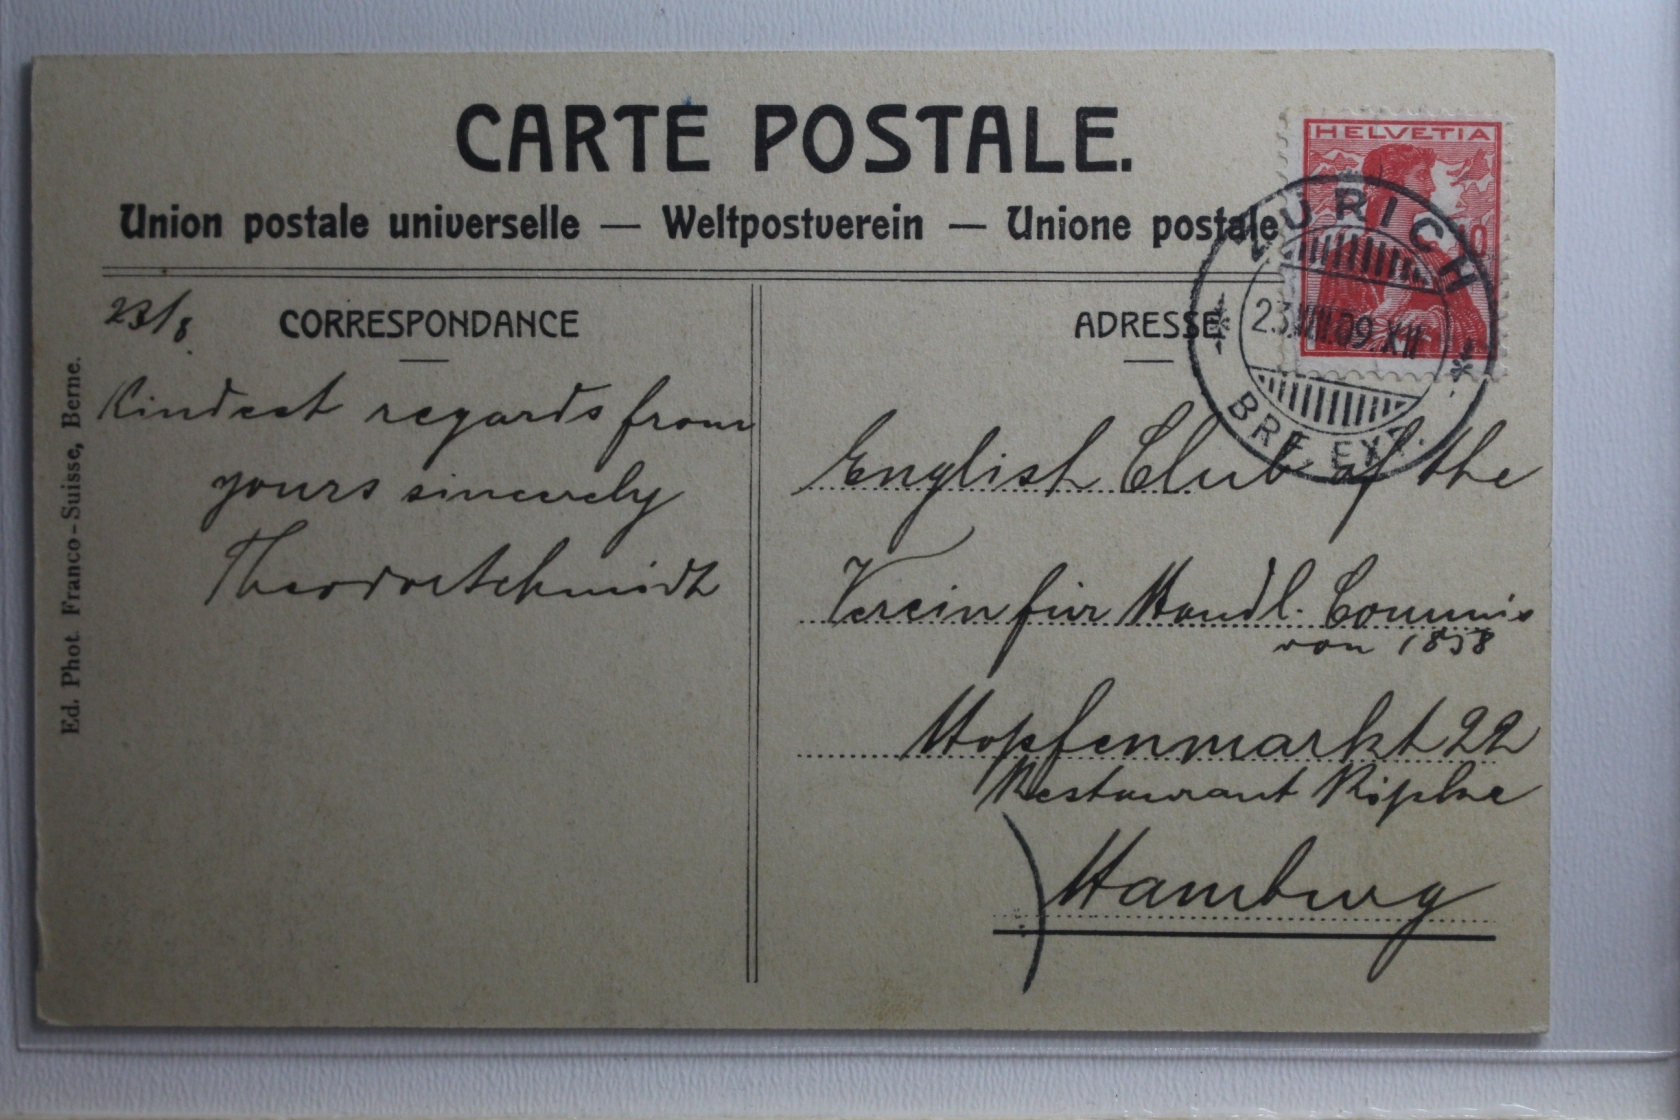 CARTE POSTALE.
Union postale universelle — Weltpostverein — Unione postale
HELVETIA
10
ZÜRICH
23.VIII.09.XII
BRF. EXP.
CORRESPONDANCE
23/8
Kindest regards from
yours sincerely
Theodor Schmidt
Ed. Phot. Franco-Suisse, Berne.
ADRESSE
English Club of the
Verein für Handl. Commis
von 1858
Hopfenmarkt 22
Restaurant
Hamburg